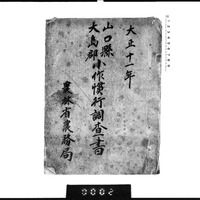 大正十一年
山口縣
大島郡小作慣行調査書
農林省農務局
0002